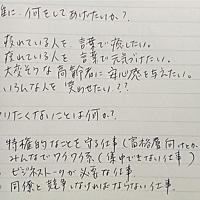 誰に 何をしてあげたいか？
疲れている人を 言葉で癒したい。
疲れている人を 言葉で元気づけたい。
大変そうな高齢者に 安心感を与えたい。
いろんな人を 笑わせたい??
りたくないことは何か？
特権的なことを守る仕事（富裕層向けとか
みんなでワイワイ系（集中できない仕事）
ビジネストークが必要な仕事
同僚と競争しなければならない仕事。